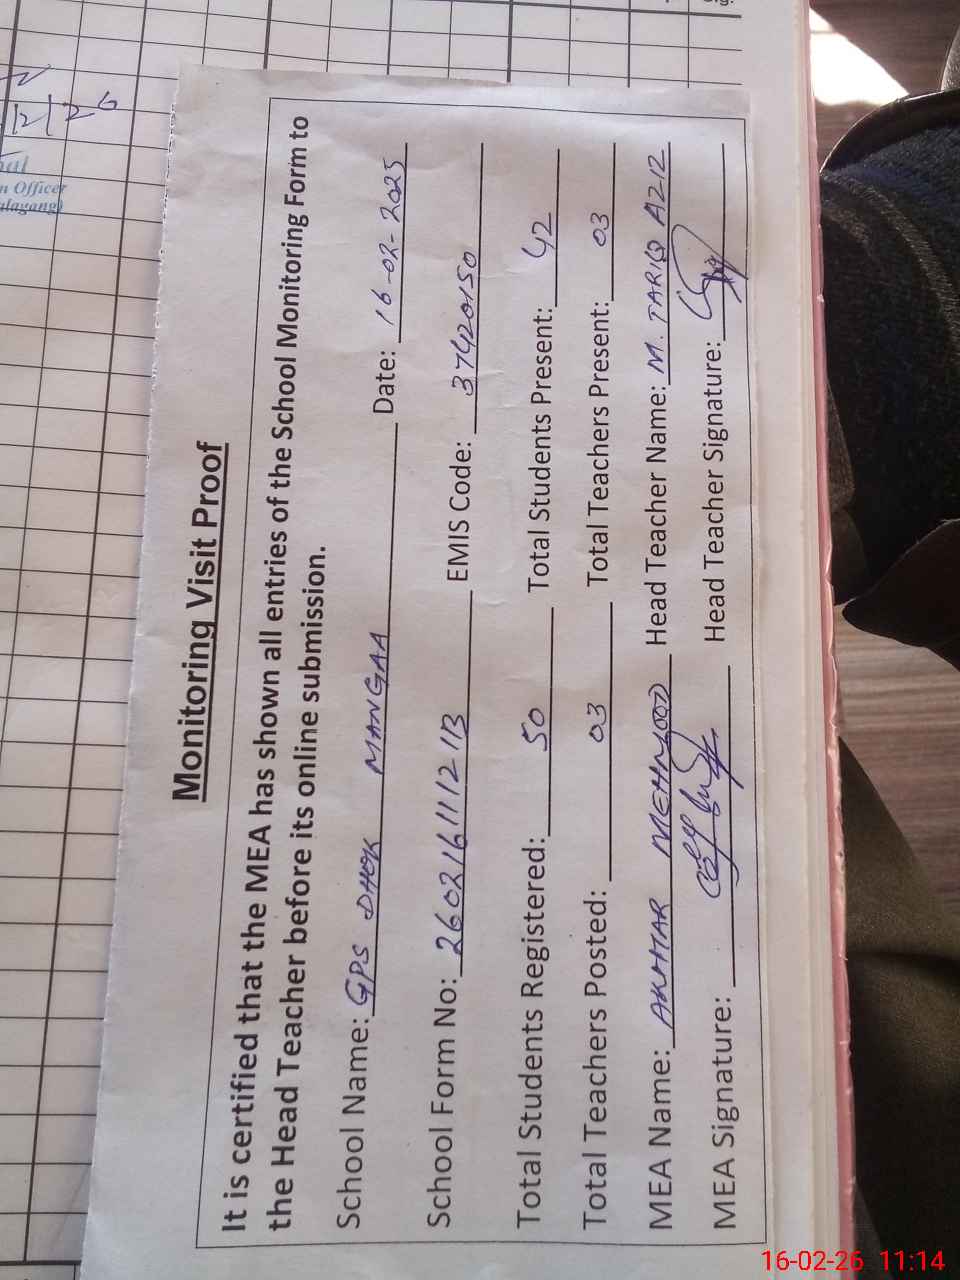 Monitoring Visit Proof
It is certified that the MEA has shown all entries of the School Monitoring Form to
the Head Teacher before its online submission.
School Name: GPS DHOK MANGAA Date: 16-02-2025
School Form No: 2602161112113 EMIS Code: 37420150
Total Students Registered: 50 Total Students Present: 42
Total Teachers Posted: 03 Total Teachers Present: 03
MEA Name: AKHTAR MEHMOOD Head Teacher Name: M. TARIQ AZIZ
MEA Signature: Head Teacher Signature:
n Officer
alagang)
16-02-26 11:14